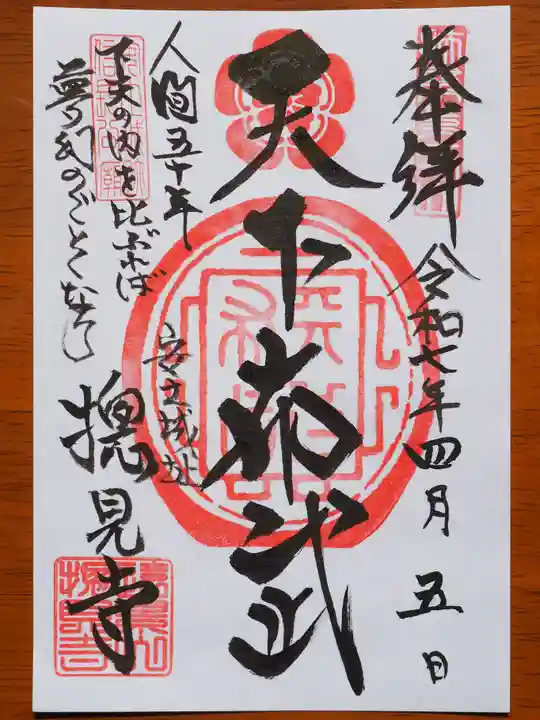 奉拝
令和七年四月五日
天下布武
安土城址
人間五十年
下天の内を比ぶれば
夢幻のごとくなり
摠見寺
天下布武